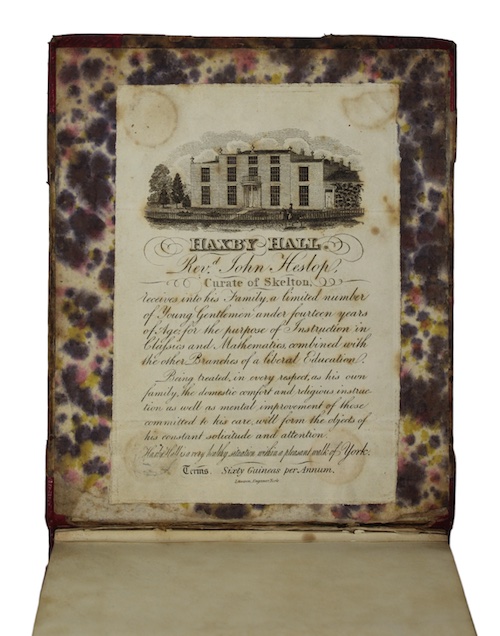 HAXBY HALL.
Rev.d John Heslop,
Curate of Skelton,
receives into his Family, a limited number
of Young Gentlemen under fourteen years
of Age, for the purpose of Instruction in
Classics and Mathematics, combined with
the other Branches of a liberal Education.
Being treated, in every respect, as his own
family, the domestic comfort and religious instruc-
tion as well as mental improvement of those
committed to his care, will form the objects of
his constant solicitude and attention.
Haxby Hall is a very healthy situation within a pleasant walk of York.
Terms. Sixty Guineas per Annum.
Engraver York